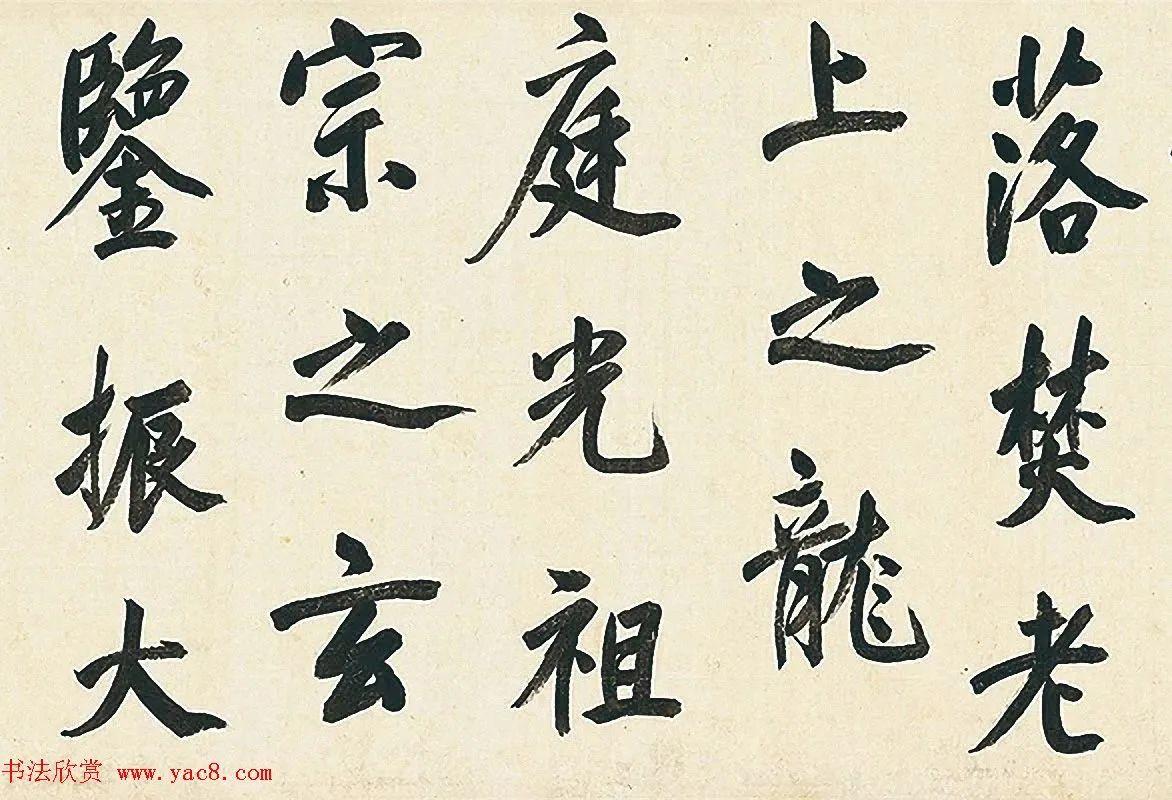 落焚老
上之龍
庭光祖
宗之玄
鑒振大
书法欣赏 www.yac8.com